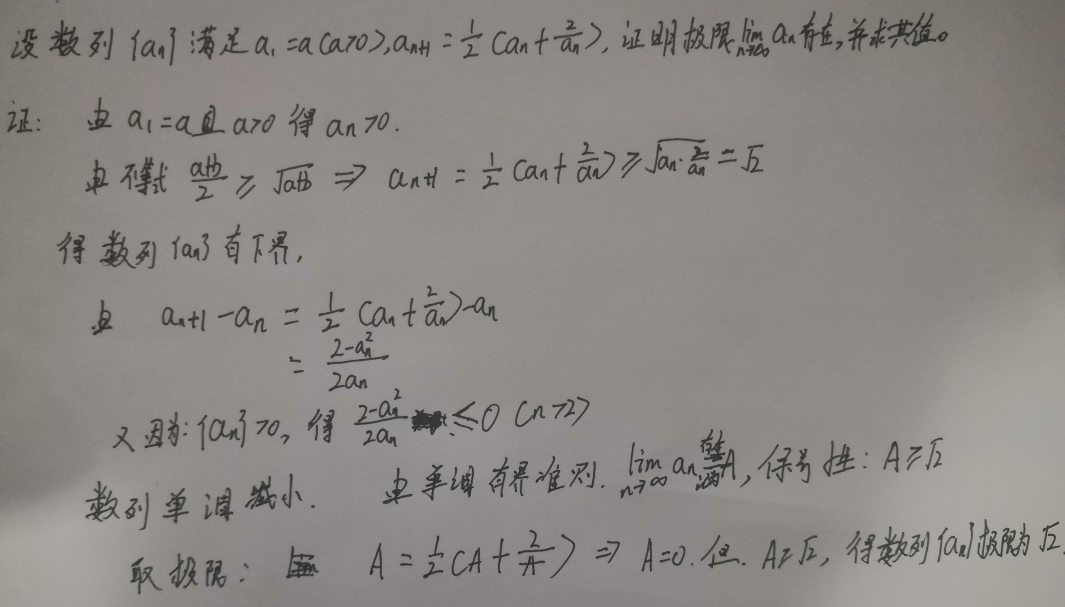 设数列{an}满足a₁=a(a>0),aₙ₊₁=½(aₙ+2/aₙ),证明极限lim n→∞ aₙ存在,并求其值。
证: 由a₁=a且a>0得aₙ>0.
由不等式 (a+b)/2 ≥ √(a+b) ⇒ aₙ₊₁=½(aₙ+2/aₙ)≥√(aₙ·2/aₙ)=√2
得数列{aₙ}有下界,
由 aₙ₊₁-aₙ=½(aₙ+2/aₙ)-aₙ
=(2-aₙ²)/(2aₙ)
又因为:{aₙ}>0,得(2-aₙ²)/(2aₙ)≤0(n>2)
数列单调减小. 由单调有界准则.lim n→∞ aₙ存在 A,保号性:A≥√2
取极限: A=½(A+2/A)⇒A=0.但.A≥√2,得数列{aₙ}极限为√2